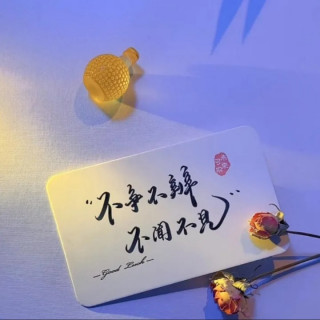 “不争不辩
不闻不见”
—Good Luck—